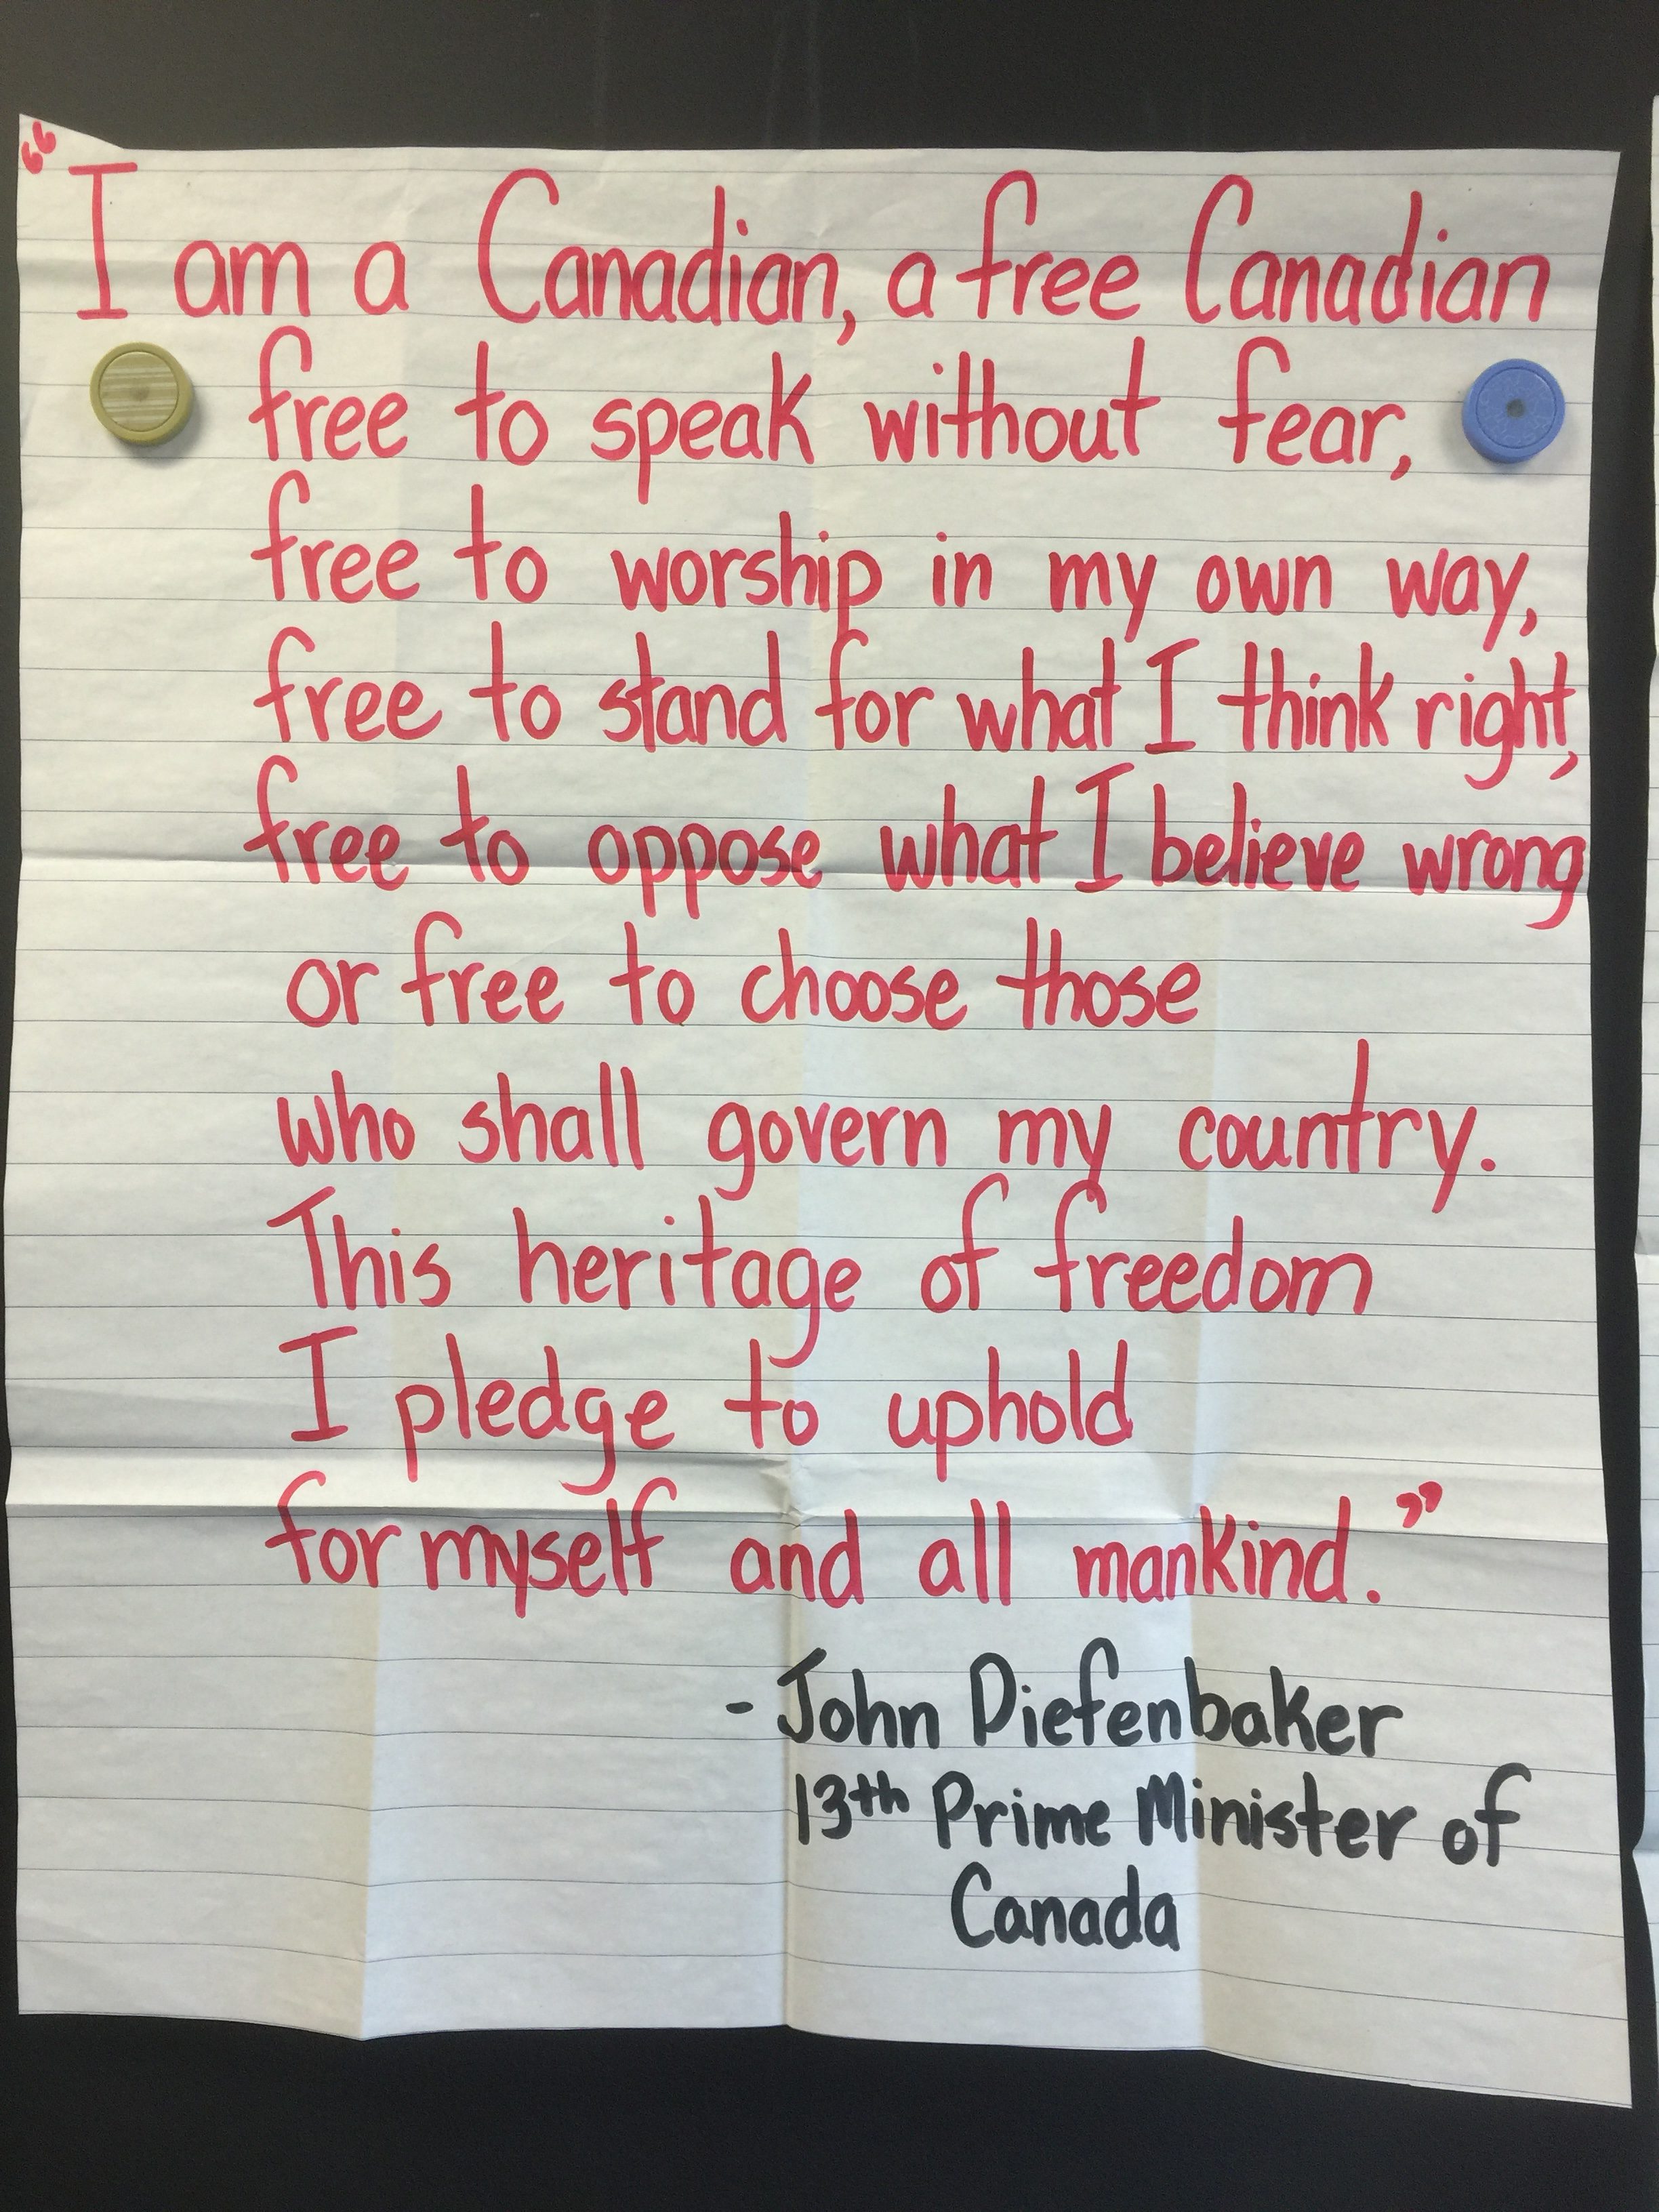 “I am a Canadian, a free Canadian
free to speak without fear,
free to worship in my own way,
free to stand for what I think right,
free to oppose what I believe wrong
or free to choose those
who shall govern my country.
This heritage of freedom
I pledge to uphold
for myself and all mankind.”
- John Diefenbaker
13th Prime Minister of
Canada